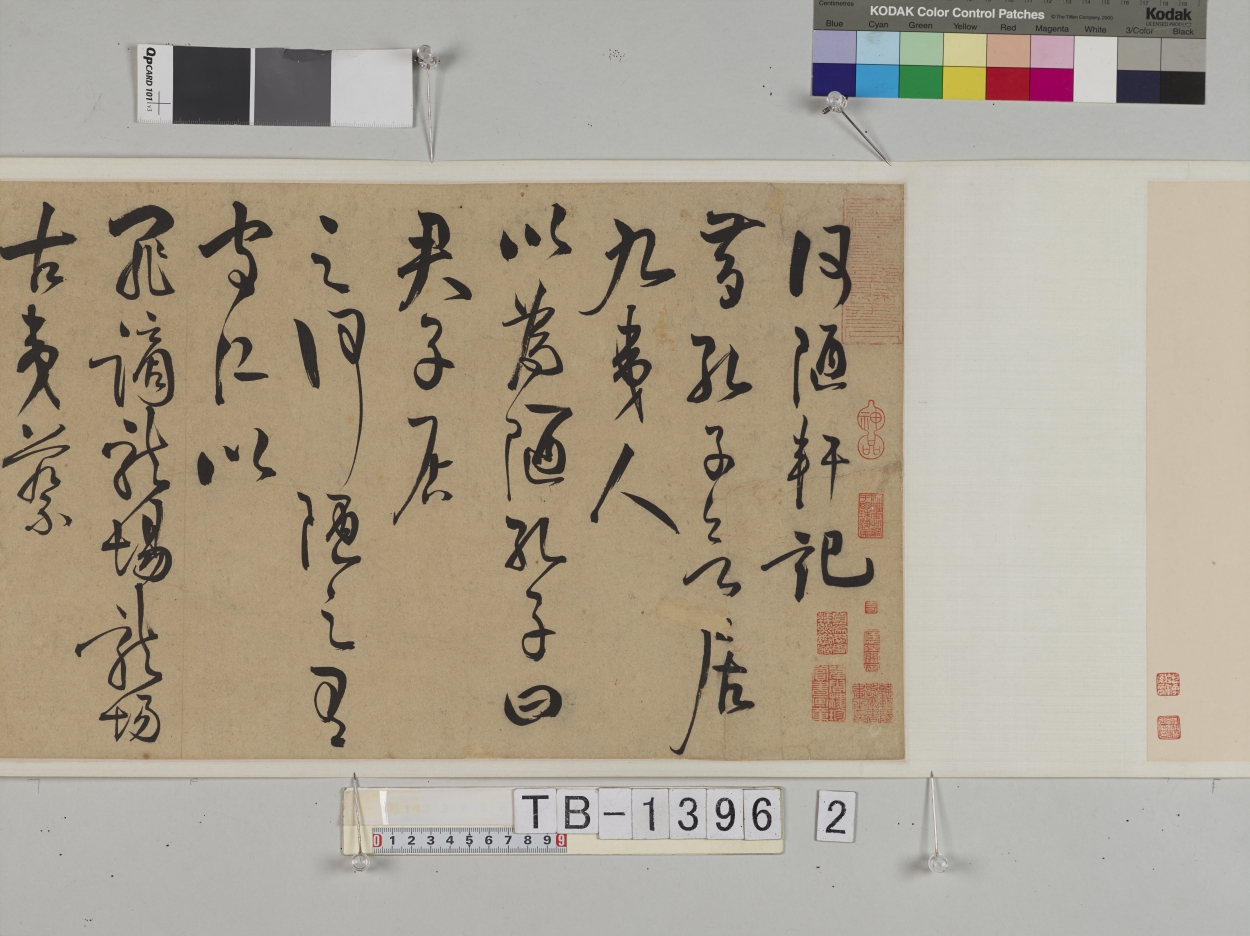 何陋軒記
昔孔子欲居
九夷人
以為陋孔子曰
君子居
之何陋之有
守仁以
罪謫龍場龍場
古夷蔡
QpCARD 101 v1
Centimetres
KODAK Color Control Patches
© The Tiffen Company, 2000
Kodak
LICENSED PRODUCT
Blue Cyan Green Yellow Red Magenta White 3/Color Black
TB-1396 2
0 1 2 3 4 5 6 7 8 9